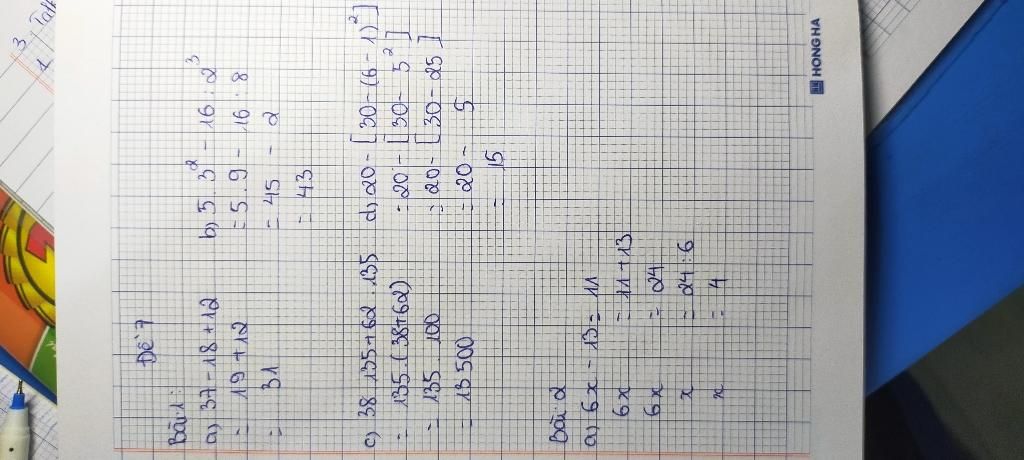 Đề 7
Bài 1:
a) 37 - 18 + 12
= 19 + 12
= 31
b) 5 . 3² - 16 : 2³
= 5 . 9 - 16 : 8
= 45 - 2
= 43
c) 38 . 135 + 62 . 135
= 135 . (38 + 62)
= 135 . 100
= 13 500
d) 20 - [30 - (6 - 1)²]
= 20 - [30 - 5²]
= 20 - [30 - 25]
= 20 - 5
= 15
Bài 2
a) 6x - 13 = 11
6x = 11 + 13
6x = 24
x = 24 : 6
x = 4
HONG HA